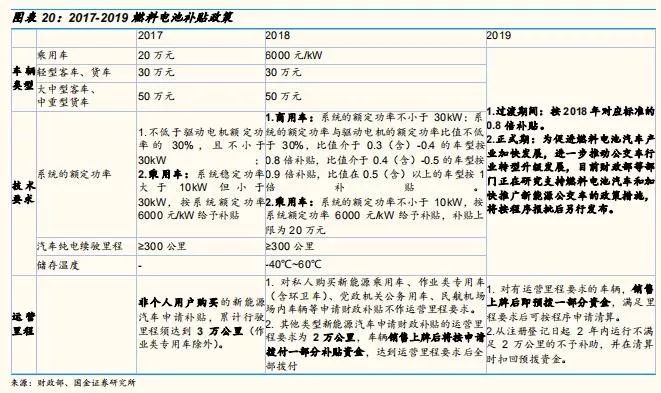 图表 20：2017-2019 燃料电池补贴政策
2017
2018
2019
车辆
类型
乘用车
20 万元
6000 元/kW
轻型客车、货车
30 万元
30 万元
大中型客车、
中重型货车
50 万元
50 万元
技术
要求
系统的额定功率
1.不低于驱动电机额定功
率的 30%，且不小于
30kW；
2.乘用车：系统稳定功率
大于 10kW 但小于
30kW，按系统额定功率
6000 元/kW 给予补贴
1.商用车：系统的额定功率不小于 30kW；系
统的额定功率与驱动电机的额定功率比值不低
于 30%，比值介于 0.3（含）-0.4 的车型按
0.8 倍补贴，比值介于 0.4（含）-0.5 的车型按
0.9 倍补贴，比值在 0.5（含）以上的车型按 1
倍补贴。
2.乘用车：系统的额定功率不小于 10kW，按
系统额定功率 6000 元/kW 给予补贴，补贴上
限为 20 万元
汽车纯电续驶里程
≥300 公里
≥300 公里
储存温度
-
-40℃~60℃
1.过渡期间：按 2018 年对应标准的
0.8 倍补贴。
2.正式期：为促进燃料电池汽车产
业加快发展，进一步推动公交车行
业转型升级发展，目前财政部等部
门正在研究支持燃料电池汽车和加
快推广新能源公交车的政策措施，
将按程序报批后另行发布。
运营
里程
非个人用户购买的新能源
汽车申请补贴，累计行驶
里程须达到 3 万公里（作
业类专用车除外）。
1. 对私人购买新能源乘用车、作业类专用车
（含环卫车）、党政机关公务用车、民航机场
场内车辆等申请财政补贴不作运营里程要求。
2. 其他类型新能源汽车申请财政补贴的运营里
程要求为 2 万公里，车辆销售上牌后将按申请
拨付一部分补贴资金，达到运营里程要求后全
部拨付
1. 对有运营里程要求的车辆，销售
上牌后即预拨一部分资金，满足里
程要求后可按程序申请清算。
2.从注册登记日起 2 年内运行不满
足 2 万公里的不予补助，并在清算
时扣回预拨资金。
来源：财政部、国金证券研究所